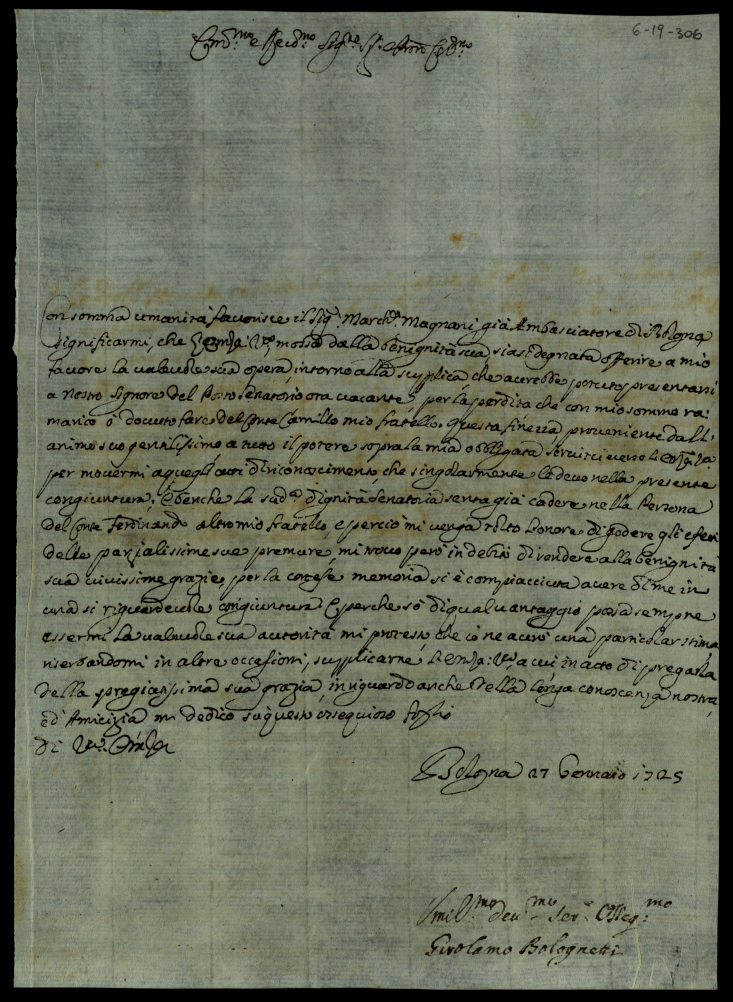 6-19-306
Em̃o e Reṽmo Sig.re Sig.re e Pron Col.mo
Con somma umanità favorisce il Sig.r March.e Magnani, già Ambasciatore di Bologna
significarmi, che l'Em̃za V.ra mossa dalla benignità sua, siasi degnata offerire a mio
favore la valevole sua opera, intorno alla supplica che averebbe potuto presentarsi
a Nostro Signore del Posto Senatorio ora vacante, per la perdita che con mio sommo ra:
marico ò dovuto fare del Conte Camillo mio fratello. Questa finezza proveniente dall'
animo suo gentilissimo a tutto il potere sopra la mia obbligata servitù verso l'Em̃za V.ra
per movermi a quegli atti di riconoscimento, che singolarmente le devo nella presente
congiuntura; E benche la sud.a dignità Senatoria senta già cadere nella Persona
del Conte Ferdinando altro mio fratello, e perciò mi venga tolto l'onore di godere gli effetti
delle parzialissime sue premure, mi trovo però in debito di rendere alla benignità
sua vivissime grazie, per la cortese memoria si è compiacciuta avere di me in
una si riguardevole congiuntura. E perche sò di qual vantaggio possa sempre
essermi la valevole sua autorità, mi protesto che io ne avrò una particolar stima
riserbandomi in altre occasioni, supplicarne l'Em̃za V.ra, a cui in atto di pregarla
della pregiatissima sua grazia, in riguardo anche della lunga conoscenza nostra,
ed' Amicizia mi dedico su questo ossequioso foglio
di V.ra Em̃za
Bologna 27 Gennaio 1725
Umil.mo dev.mo Ser.e Osseq.mo
Girolamo Bolognetti